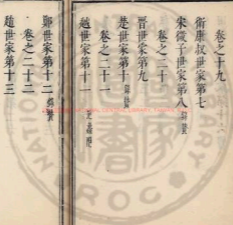 卷之十九
衛康叔世家第七
宋微子世家第八
卷之二十
晉世家第九
楚世家第十
卷之二十一
越世家第十一
鄭世家第十二
卷之二十二
趙世家第十三